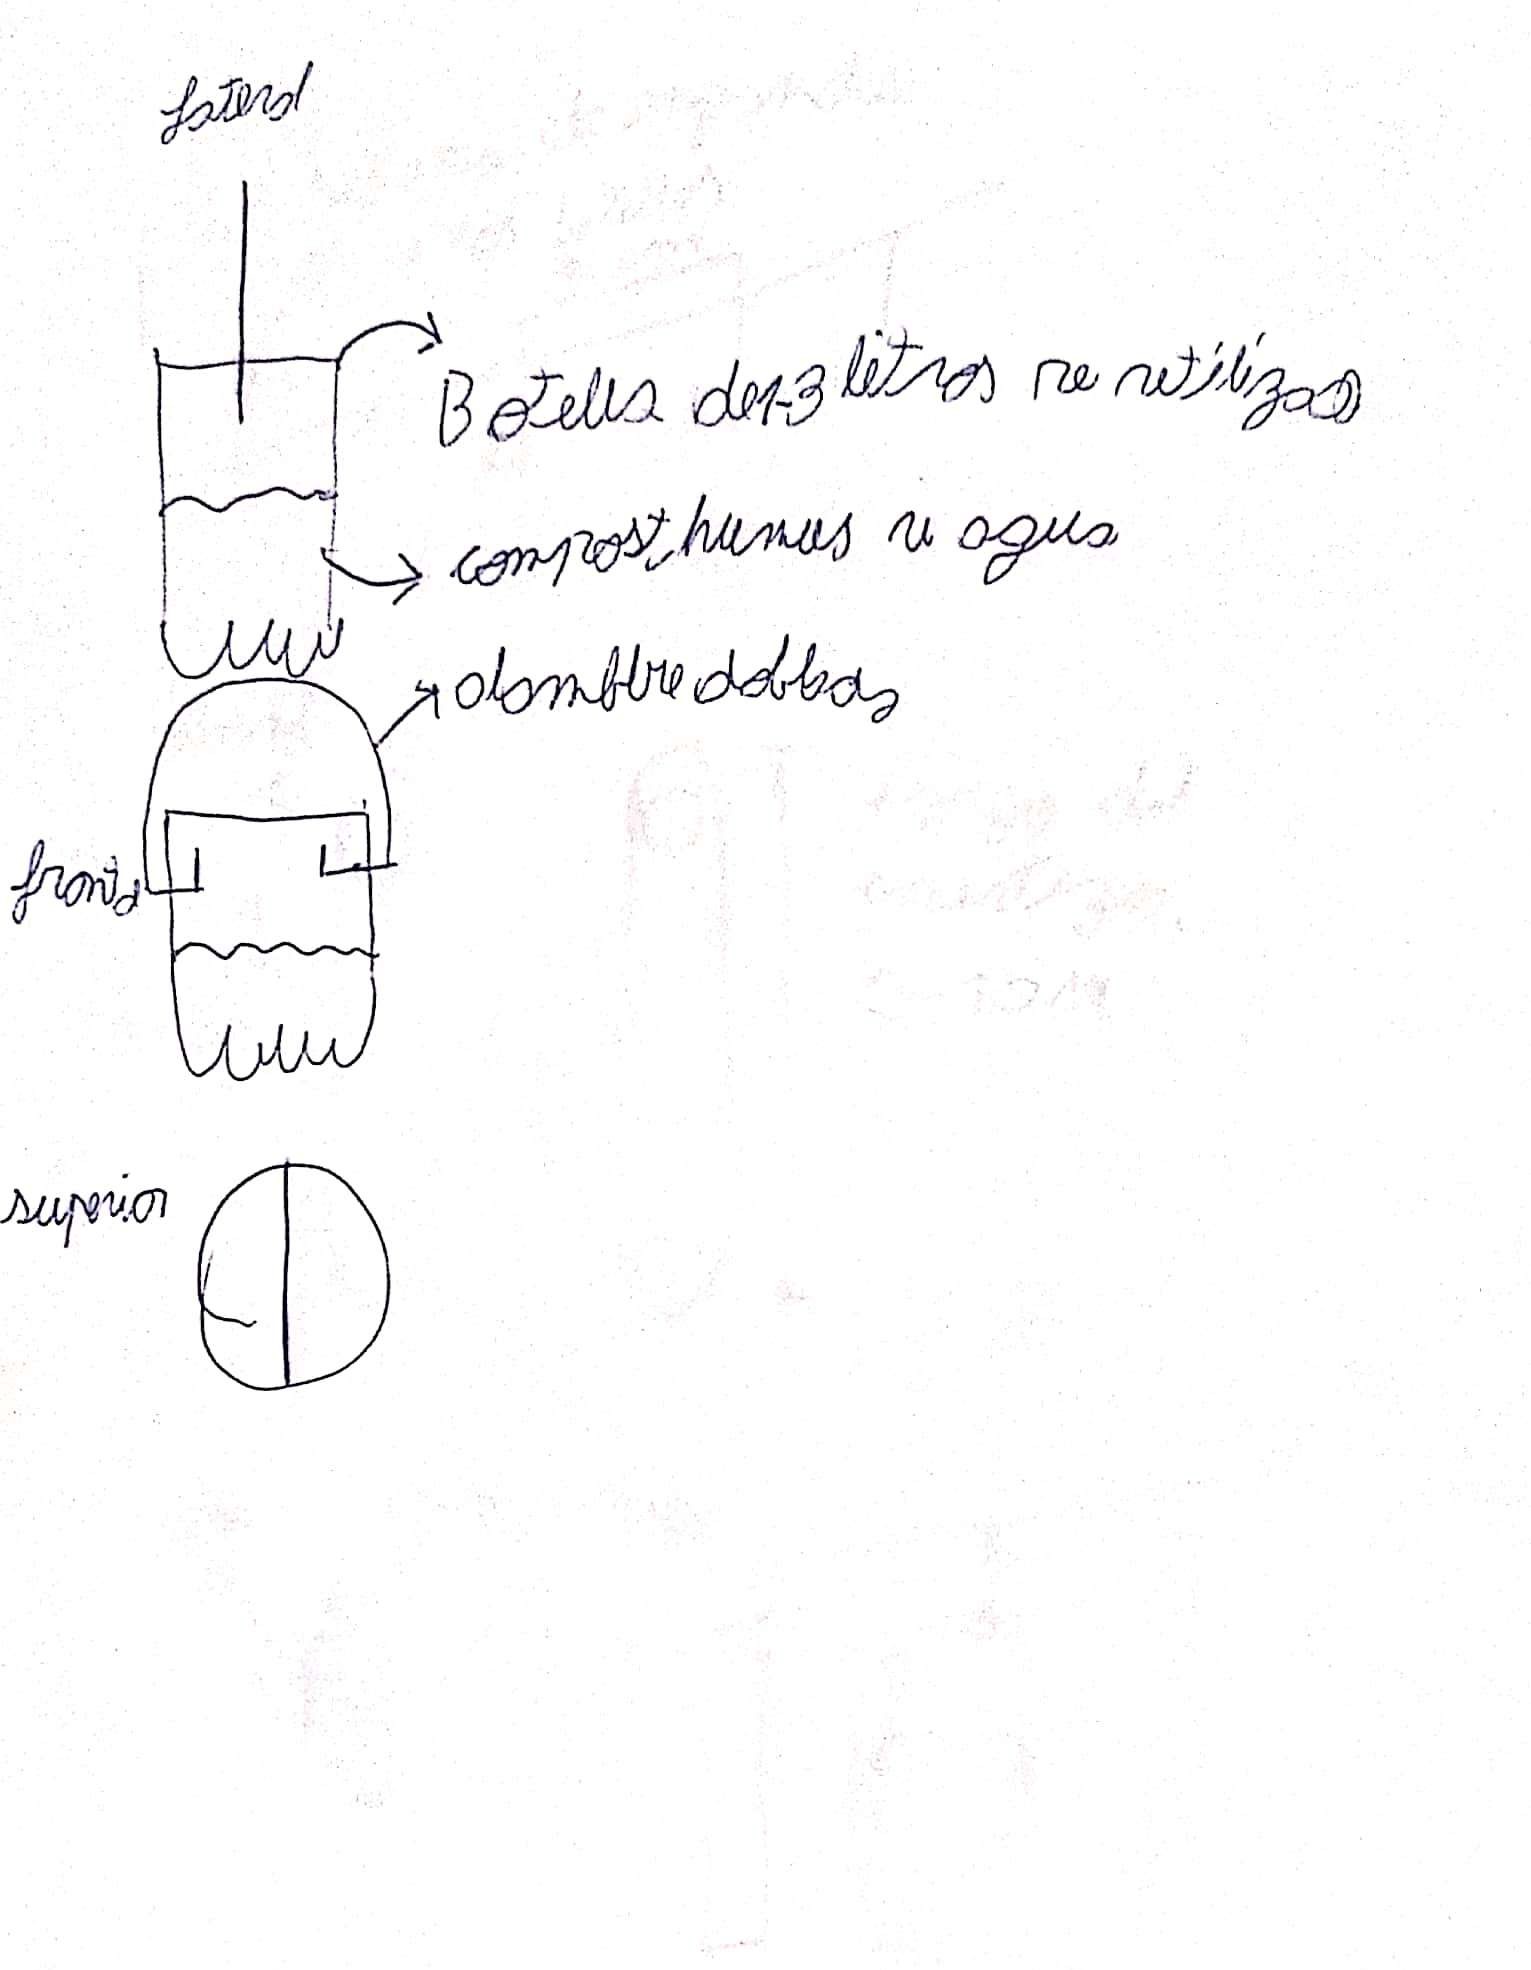 lateral
Botella de 1-3 litros re utilizada
compost, humus u agua
alambre doblado
frontal
superior